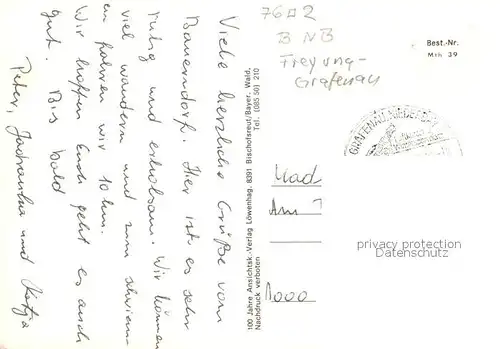 Viele herzliche Grüße vom
Bauerndorf. Hier ist es sehr
ruhig und erholsam. Wir können
viel wandern und zum schwimm-
en fahren wir 10 km.
Wir hoffen Euch geht es auch
gut. Bis bald
Peter, und Katja
100 Jahre Ansichtsk.-Verlag Löwenhag, 8391 Bischofsreut/Bayer. Wald,
Tel. (085 50) 210
Nachdruck verboten
76 2
B NB
Freyung-
Grafenau
Best.-Nr.
Mth 39
GRAFENAU, NIEDERB
Am
1000
privacy protection
Datenschutz